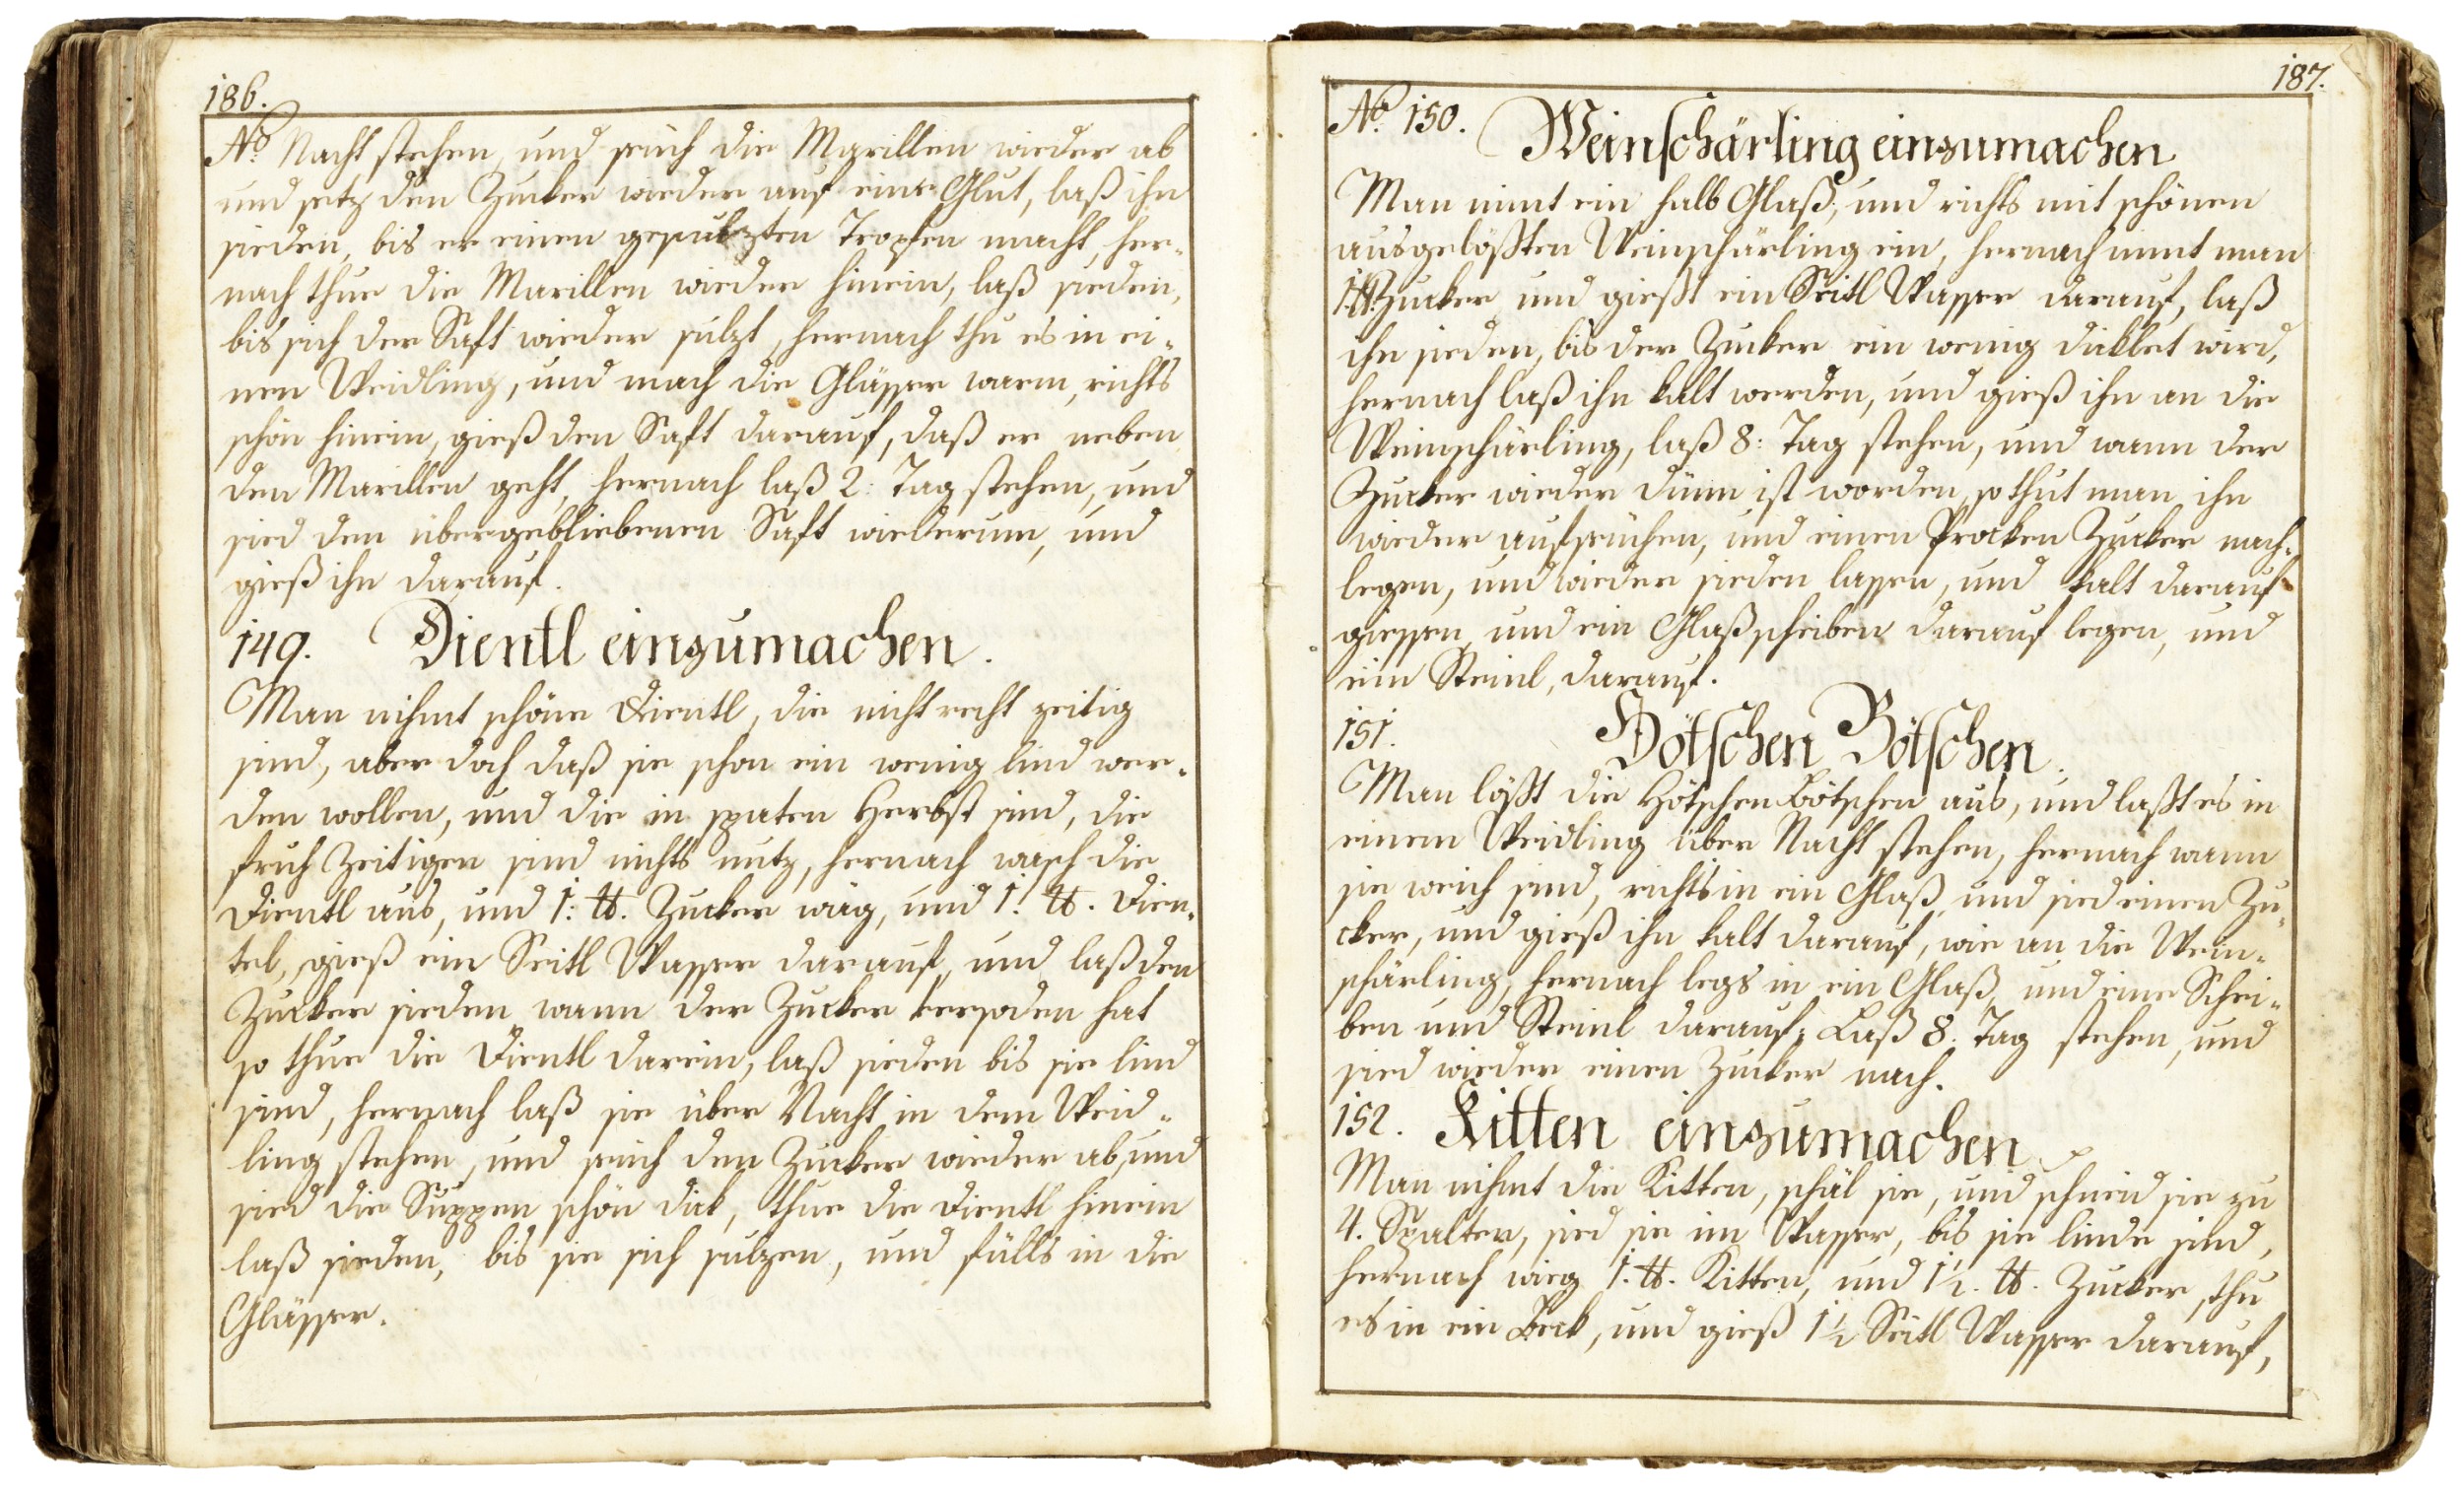 186.
No: Nacht stehen, und seüch die Marillen wieder ab
und setz den Zucker wieder auf eine Glut, laß ihn
sieden, bis er einen gesulzten Tropfen macht, her-
nach thue die Marillen wieder hinein, laß sieden,
bis sich der Saft wieder sulzt, hernach thu es in ei-
nen Weidling, und mach die Glässer warm, richts
schön hinein, gieß den Saft darauf, daß er neben
den Marillen geht, hernach laß 2: Tag stehen, und
sied den übergebliebenen Saft wiederum, und
gieß ihn darauf.
149. Dientl einzumachen.
Man nihmt schöne Dientl, die nicht recht zeitig
sind, aber doch daß sie schon ein wenig lind wer-
den wollen, und die in spaten Herbst sind, die
fruh Zeitigen sind nichts nutz, hernach wasch die
Dientl aus, und 1: ℔. Zucker wäg, und 1: ℔. Dien-
tel, gieß ein Seitl Wasser darauf, und laß den
Zucker sieden wann der Zucker versoden hat
so thue die Dientl darein, laß sieden bis sie lind
sind, hernach laß sie über Nacht in dem Weid-
ling stehen, und seüch den Zucker wieder ab, und
sied die Suppen schön dick, thue die Dientl hinein
laß sieden, bis sie sich sulzen, und fülls in die
Glässer.
187.
No: 150. Weinschärling einzumachen
Man nimt ein halb Glaß, und richts mit schönen
ausgelößten Weinschärling ein, hernach nimt man
1 ℔. Zucker und gießt ein Seitl Wasser darauf, laß
ihn sieden, bis der Zucker ein wenig dicklet wird,
hernach laß ihn kalt werden, und gieß ihn an die
Weinschärling, laß 8: Tag stehen, und wann der
Zucker wieder dünn ist worden, so thut man ihn
wieder aufseüchen, und einen Procken Zucker nach-
legen, und wieder sieden lassen, und kalt darauf
giessen, und ein Glaßscheiben darauf legen, und
ein Steinl, darauf.
151. Hötschen Bötschen.
Man lößt die Hötschen Bötschen aus, und laßt es in
einem Weidling über Nacht stehen, hernach wann
sie weich sind, richts in ein Glaß, und sied einen Zu-
cker, und gieß ihn kalt darauf, wie an die Wein-
schärling, hernach legs in ein Glaß, und eine Schei-
ben und Steinl darauf, Laß 8: Tag stehen, und
sied wieder einen Zucker nach.
152. Kitten einzumachen
Man nihmt die Kitten, schäl sie, und schneid sie zu
4. Spalten, sied sie im Wasser, bis sie linde sind,
hernach wieg 1. ℔. Kitten, und 1½. ℔. Zucker, thu
es in ein Beck, und gieß 1½ Seitl Wasser darauf,